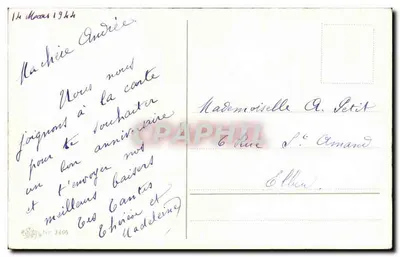 14 Mars 1944
Ma chère Andrée
Nous nous
joignons à la carte
pour te souhaiter
un bon anniversaire
et t'envoyer nos
meilleurs baisers
Tes Tantes
Thérèse et
Madeleine
Mademoiselle A. Petit
Rue St Amand